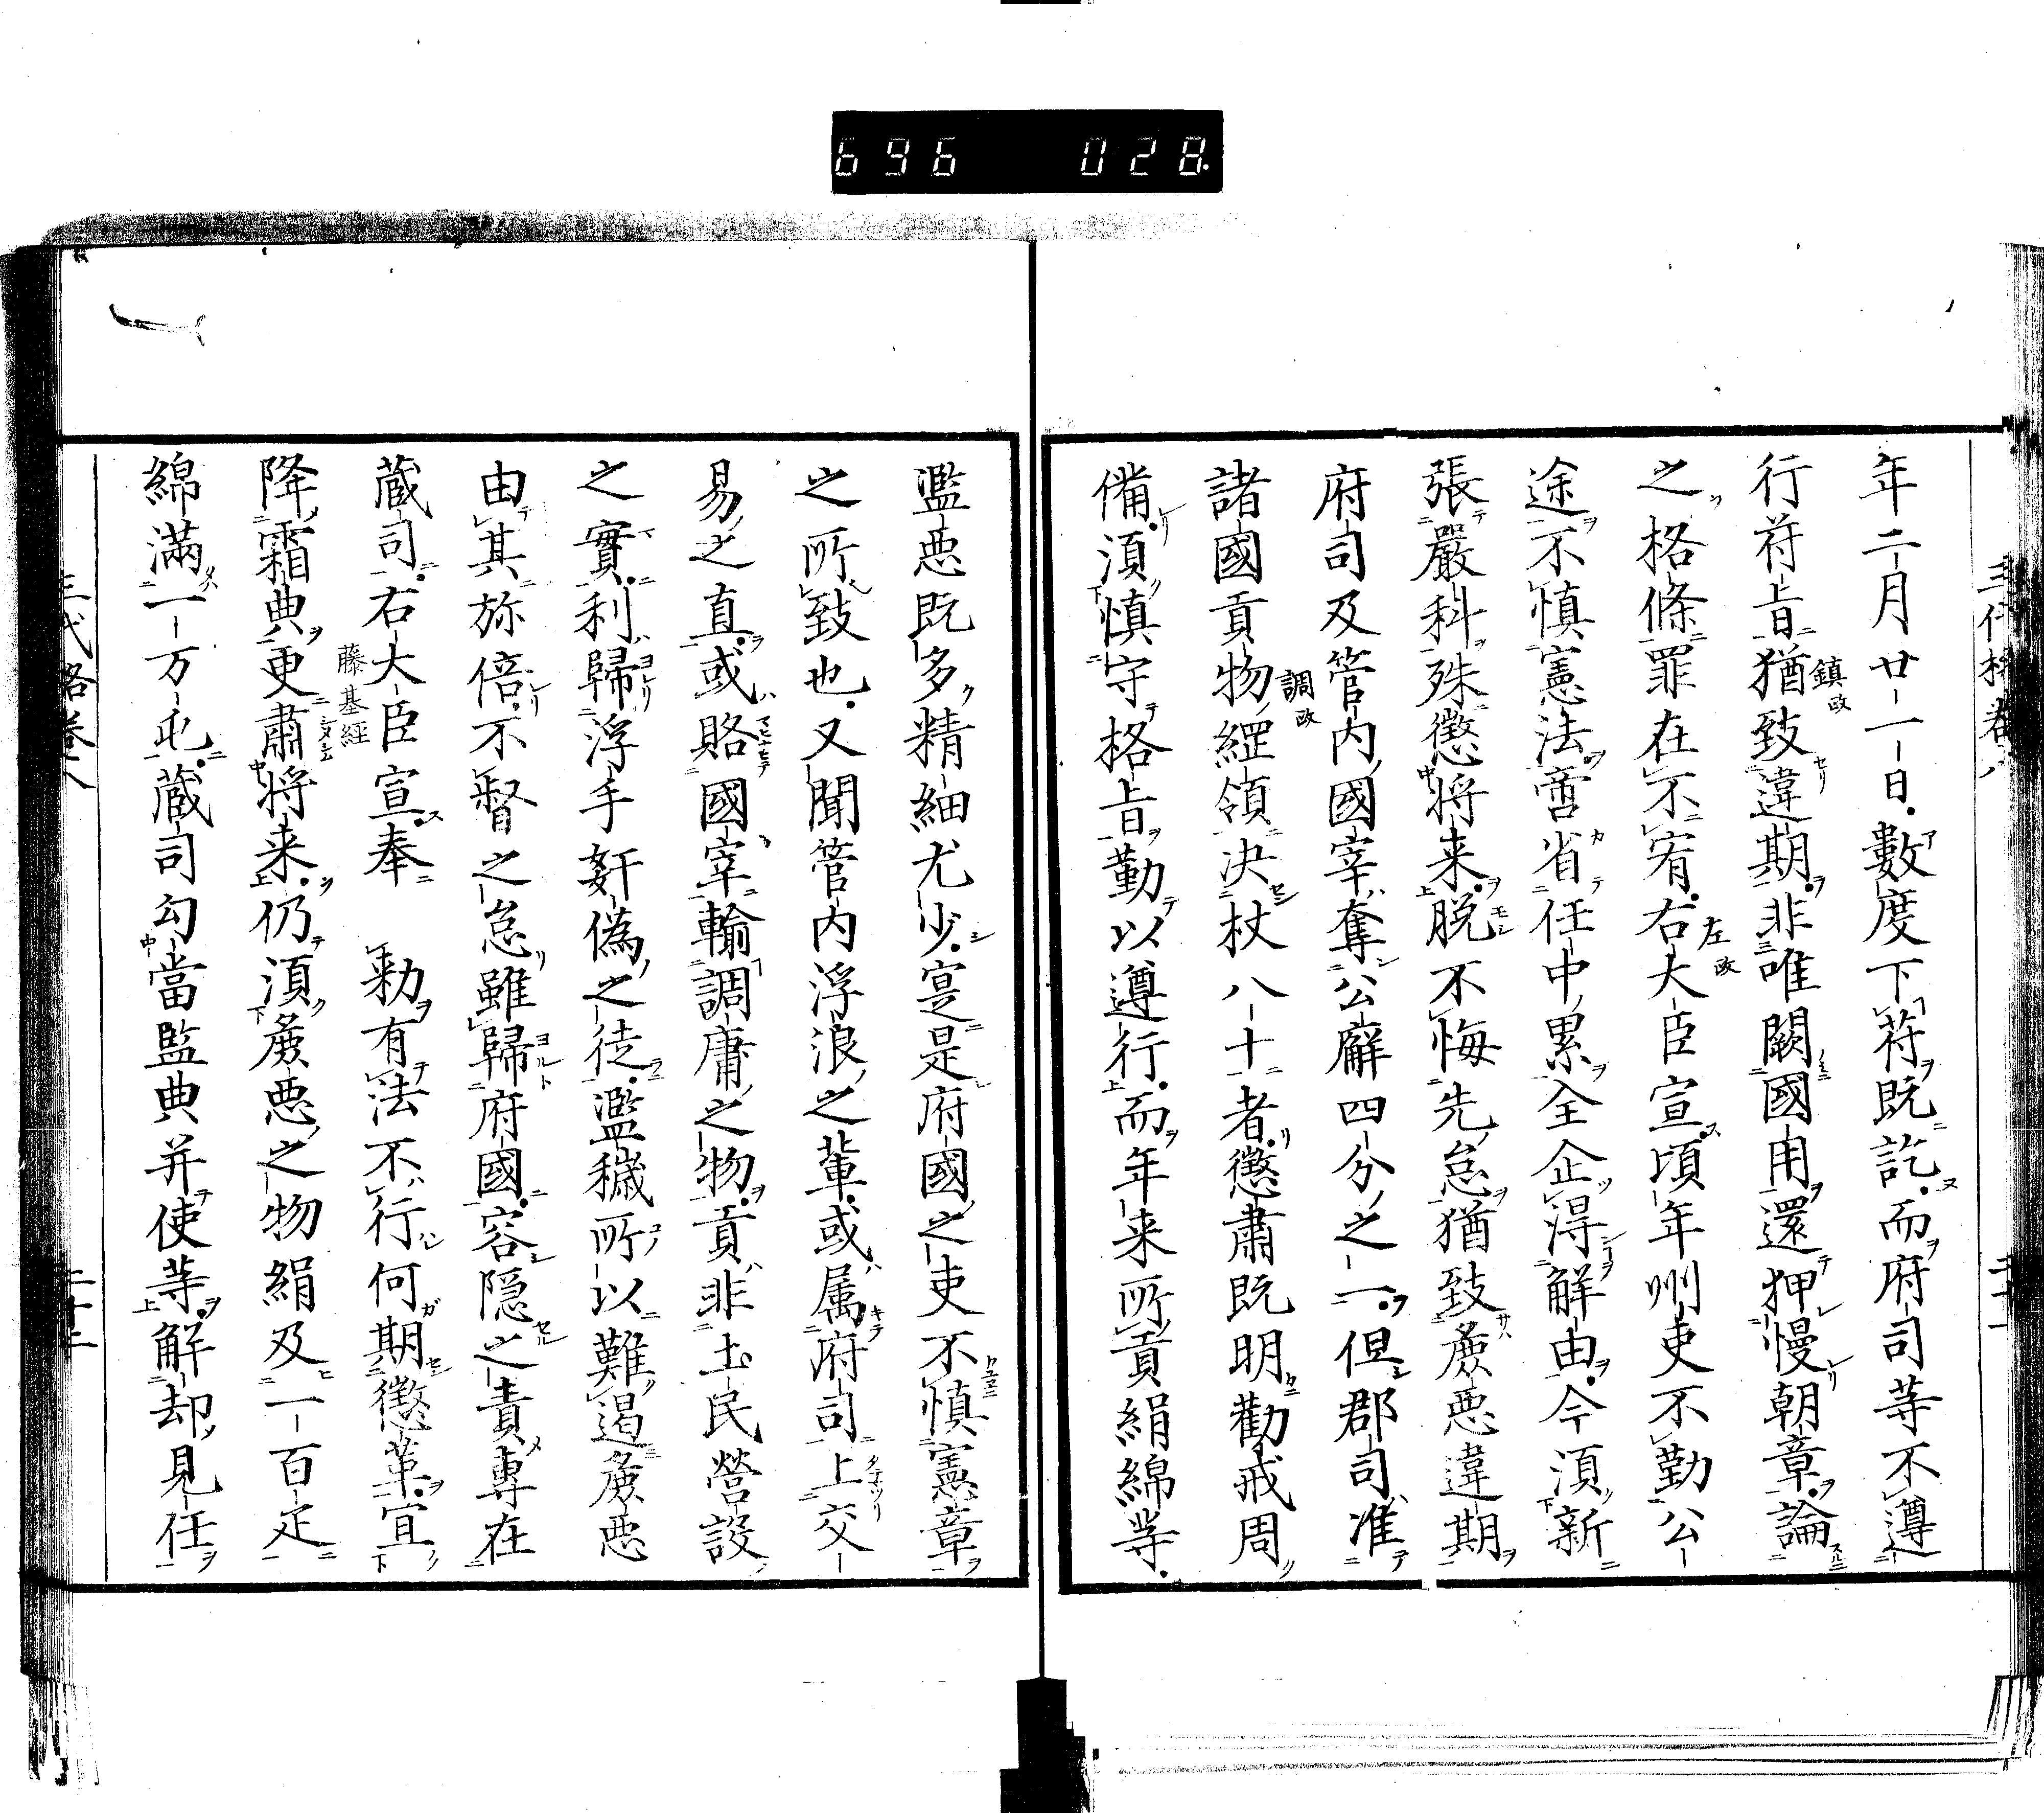 696 028
年二月廿一日數度下符既訖而府司等不遵
行符旨猶致違期非唯闕國用還狎慢朝章論
鎮政
之格條罪在不宥右大臣宣頃年州吏不勤公
左政
途不慎憲法啻省任中累全企得解由今須新
張嚴科殊懲将来脱不悔先怠猶致麁悪違期
府司及管内國宰奪公廨四分之一但郡司准
諸國貢物綱領决杖八十者懲肅既明勸戒周
調政
備須慎守格旨勤以遵行而年来所貢絹綿等
濫悪既多精細尤少寔是府國之吏不慎憲章
之所致也又聞管内浮浪之輩或属府司上交
易之直或賂國宰輸調庸之物貢非土民營設
之實利歸浮手奸偽之徒濫穢所以難遏麁悪
由其旅倍不督之怠雖歸府國容隠之責専在
蔵司右大臣宣奉　勅有法不行何期懲革宜
藤基經
降霜典更肅将来仍須麁悪之物絹及一百疋
綿満一万屯蔵司勾當監典并使等解却見任
三代格卷八